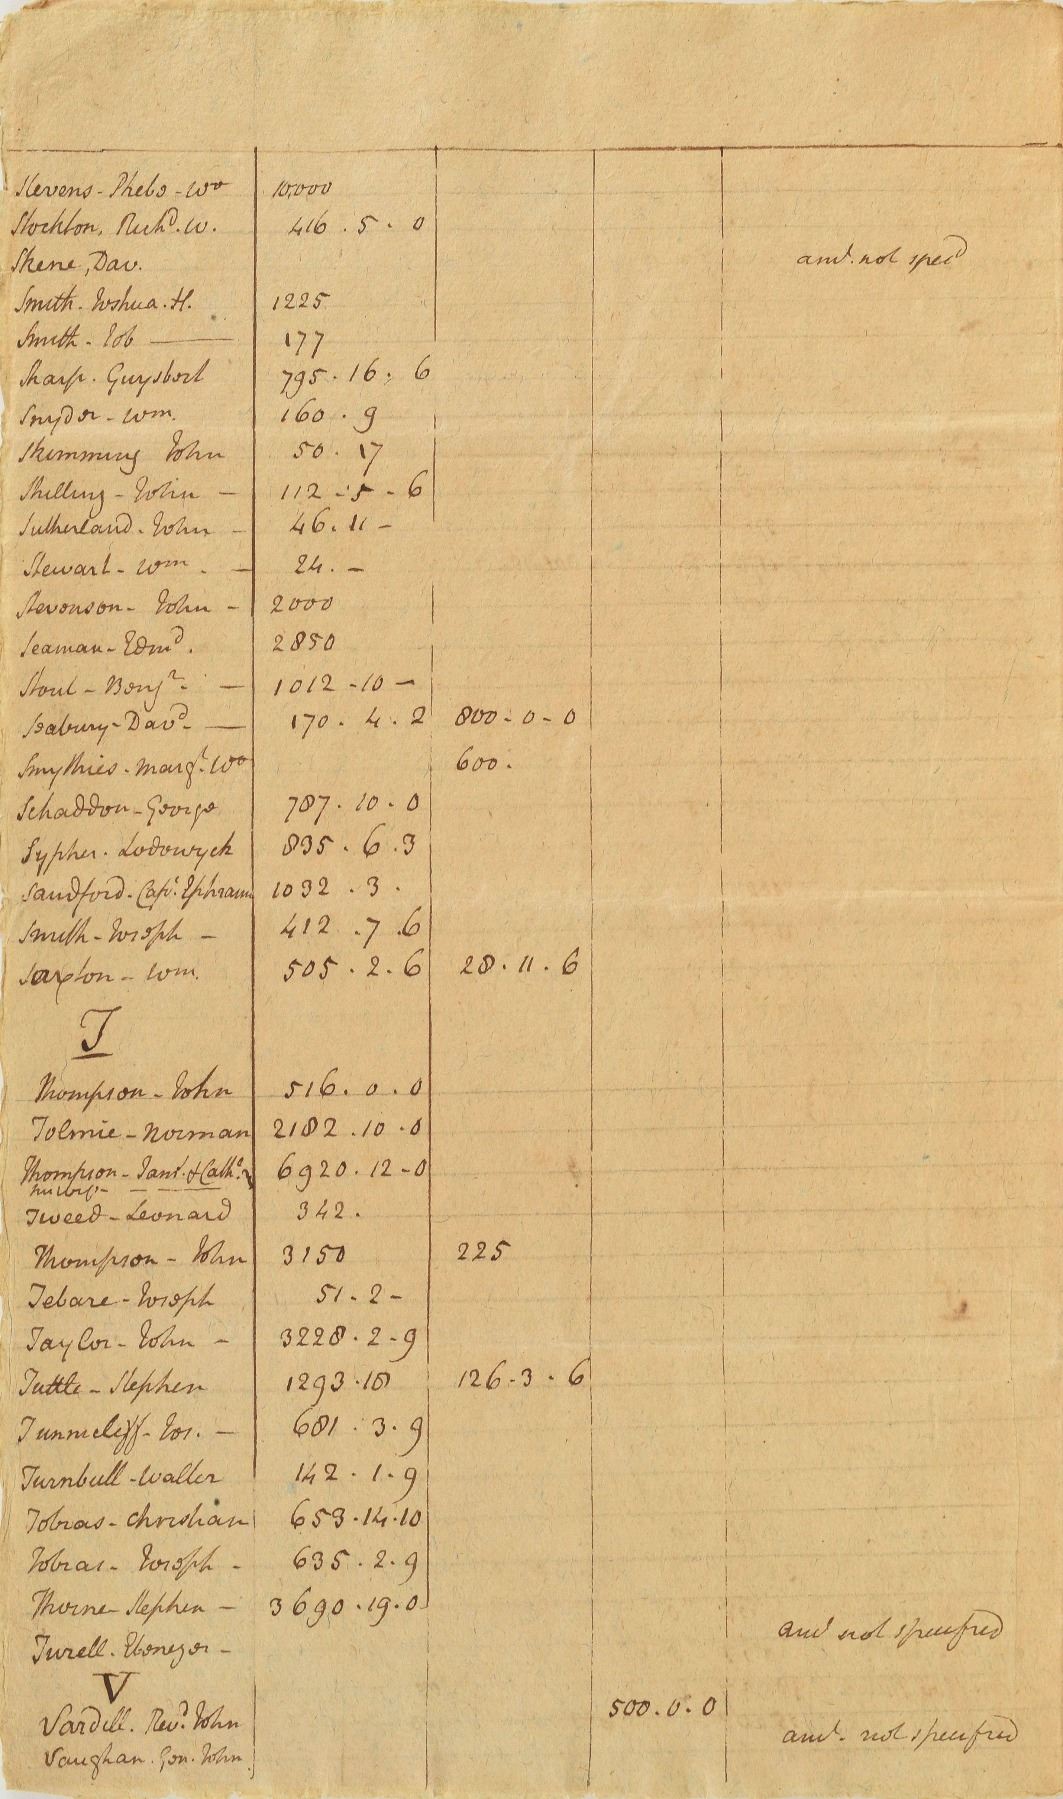 Stevens - Phebe - Wo 10,000
Stockton, Richd. W. 416 . 5 . 0
Skene, Dav. amt. not specd
Smith - Joshua . H. 1225
Smith - Job — 177
Sharp . Guysbert 795 . 16 . 6
Snyder - Wm. 160 . 9
Skimming John 50 . 17
Shilling - John — 112 - 5 - 6
Sutherland - John — 46 . 11 -
Stewart - Wm . — 24 . -
Stevenson - John - 2000
Seaman - Edmd. 2850
Stout - Benjn. — 1012 - 10 -
Seabury - Davd. — 170 . 4 . 2 800 - 0 - 0
Smythies - Margt. Wo 600 .
Schaddon - George 787 . 10 . 0
Sypher . Lodowyck 835 . 6 . 3
Sandford - Capt. Ephraim 1032 . 3 .
Smith - Joseph - 412 . 7 . 6
Saxton - Wm. 505 . 2 . 6 28 . 11 . 6
T
Thompson - John 516 . 0 . 0
Tolmie - Norman 2182 . 10 . 0
Thompson - & Cathe. 6920 . 12 - 0
Tweed - Leonard 342 .
Thompson - John 3150 225
Tebare - Joseph 51 - 2 -
Taylor - John - 3228 . 2 - 9
Tuttle - Stephen 1293 . 18 126 - 3 . 6
Tunnicliff - Jos. — 681 . 3 . 9
Turnbull - Walter 142 . 1 . 9
Tobias - Christian 653 . 14 . 10
Tobias - Joseph - 635 . 2 . 9
Thorne - Stephen - 3690 . 19 . 0
Turell . Ebenezer - amt not specified
V
Vardill . Revd. John 500 . 0 . 0
Vaughan . Gen. John amt. not specified